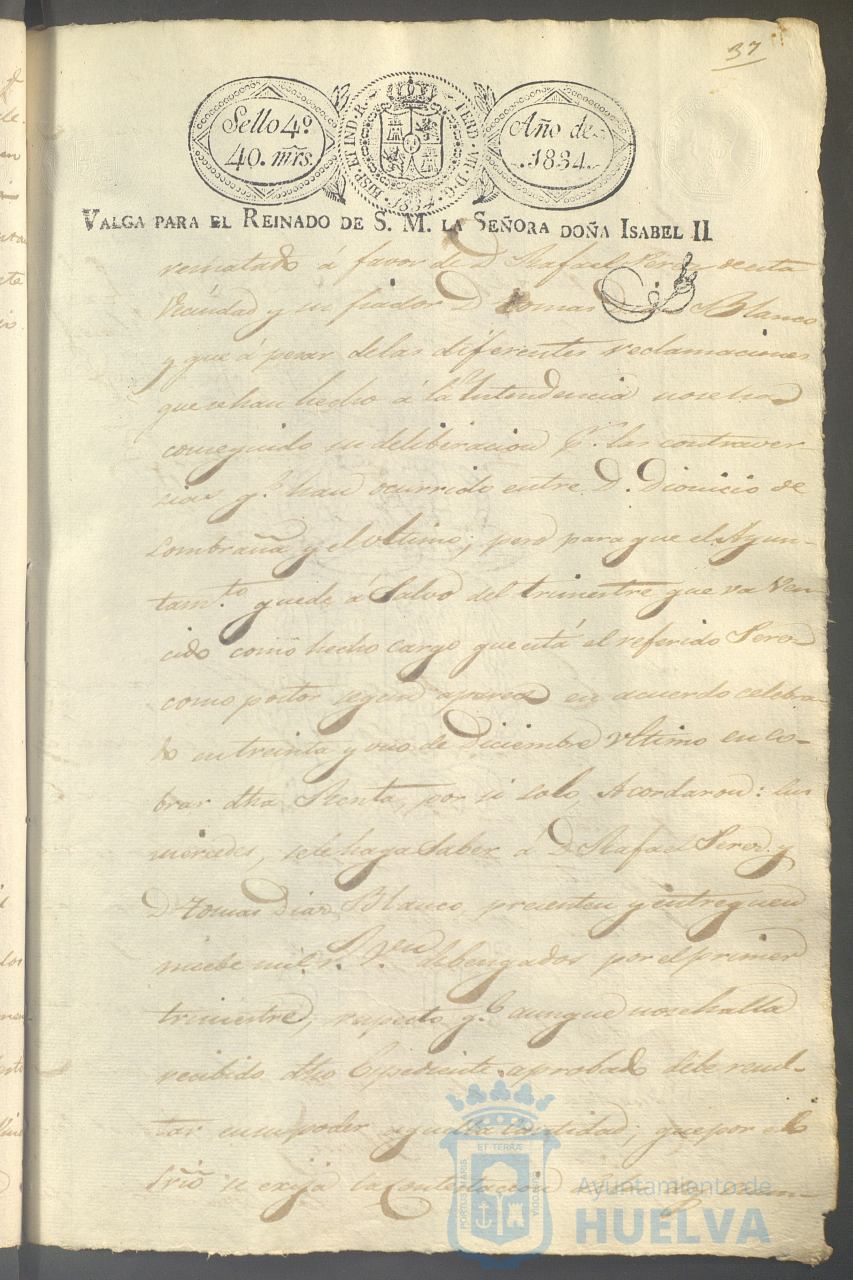 37
Sello 4º
40. mrs.
HISP. ET IND. R. FERD. VII. D. G. 1834
Año de
1834.
VALGA PARA EL REINADO DE S. M. LA SEÑORA DOÑA ISABEL II
rematado á favor de D. Rafael Perez de esta
Vecindad y su fiador D. tomas Blanco
y que á pesar de las diferentes reclamaciones
que se han hecho á la Yntendencia no se ha
conseguido su deliberacion pr. las contraver-
sias qe. han ocurrido entre D. Dionicio de
Lombraña y el ultimo; pero para que el Ayun-
tamto. quede á Salvo del trimestre que va Ven-
cido como hecho cargo que está el referido Perez
como postor segun aparece en acuerdo celebra-
do en treinta y uno de Diciembre ultimo en co-
brar dha Renta, por si solo, Acordaron: sus
mercedes, se le haga Saber á D. Rafael Perez y
D. tomas Diaz Blanco, presenten y entreguen
nuebe mil rs. Von. debengados por el primer
trimestre, respecto qe. aunque no se halla
recibido dho Expediente aprobado debe resul-
tar en su poder aquella cantidad; que por el
Srio se exija la Contestacion
PORTUS MARIS ET TERRÆ CUSTODIA
Ayuntamiento de
HUELVA